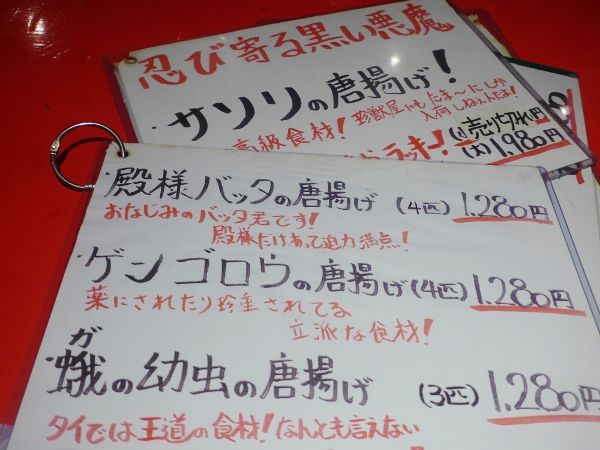 忍び寄る黒い悪魔
サソリの唐揚げ!
珍獣屋にもたま〜にしか
入荷しねぇんだよ!
高級食材!
ラッキー!
(小)売り切れ円
(大)1,980円
・殿様バッタの唐揚げ (4匹) 1,280円
おなじみのバッタ君です!
殿様だけあって迫力満点!
・ゲンゴロウの唐揚げ(4匹) 1,280円
薬にされたり珍重されてる
立派な食材!
ガ
・蛾の幼虫の唐揚げ (3匹) 1,280円
タイでは王道の食材!なんとも言えない